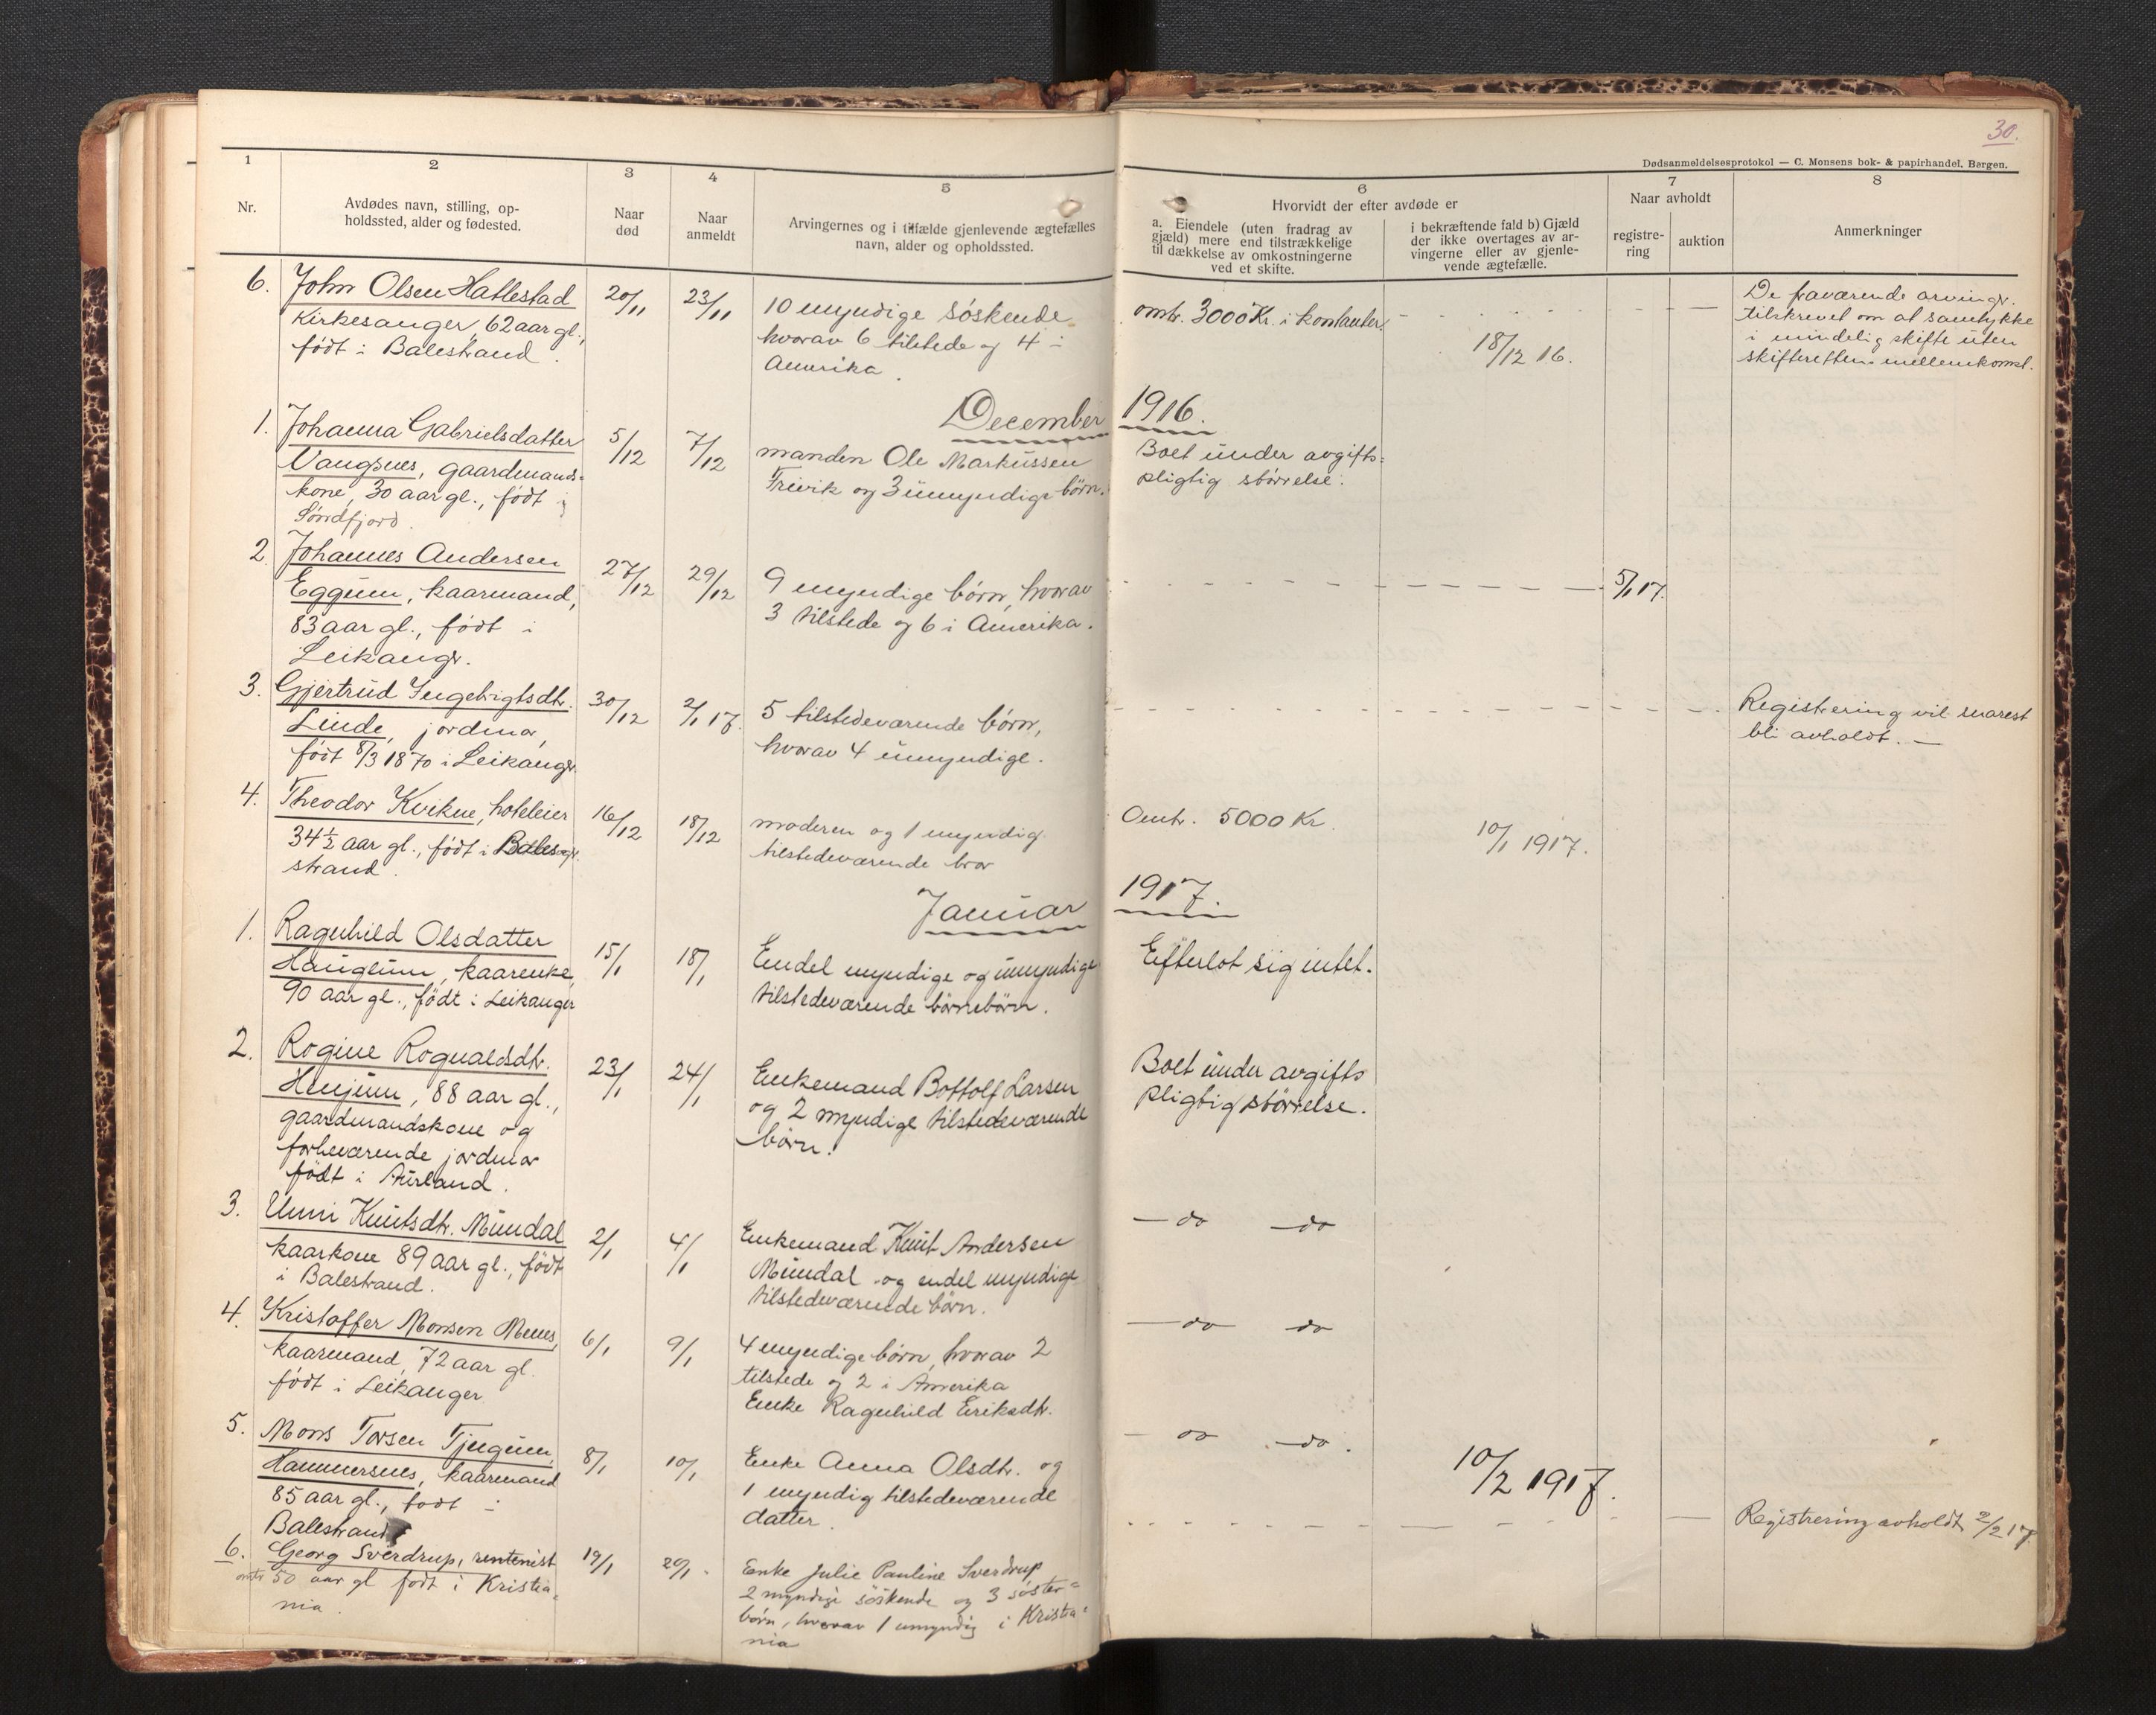 30.
Dødsanmeldelsesprotokol — C. Monsens bok- & papirhandel, Bergen.
1
2
3
4
5
6
7
8
Nr.
Avdødes navn, stilling, op-
holdssted, alder og fødested.
Naar
død
Naar
anmeldt
Arvingernes og i tilfælde gjenlevende ægtefælles
navn, alder og opholdssted.
Hvorvidt der efter avdøde er
a. Eiendele (uten fradrag av
gjæld) mere end tilstrækkelige
til dækkelse av omkostningerne
ved et skifte.
i bekræftende fald b) Gjæld
der ikke overtages av ar-
vingerne eller av gjenle-
vende ægtefælle.
Naar avholdt
registre-
ring
auktion
Anmerkninger
6. John Olsen Hatlestad
Kirkesanger, 62 aar gl.,
født i Balestrand.
20/11
23/11
10 myndige søskende
hvorav 6 tilstede og 4 i
Amerika.
omtr. 3000 Kr. i kontanter.
18/12 16.
De fraværende arvingr.
tilskrevet om at samtykke
i mindelig skifte uten
skifterettens mellemkomst.
December 1916.
1. Johanna Gabrielsdatter
Vangsnes, gaardmands-
kone, 30 aar gl., født i
Søndfjord.
5/12
7/12
manden Ole Markussen
Freivik og 3 umyndige børn.
Boet under avgifts-
pligtig størrelse.
2. Johannes Andersen
Eggum, kaarmand,
83 aar gl., født i
Leikangr.
27/12
29/12
9 myndige børn, hvorav
3 tilstede og 6 i Amerika.
5/1 17.
3. Gjertrud Ingebrigtsdtr.
Linde, jordmor,
født 8/3 1870 i Leikangr.
30/12
2/1 17.
5 tilstedeværende børn,
hvorav 4 umyndige.
Registrering vil snarest
bli avholdt. —
4. Theodor Kvikne, hoteleier
34½ aar gl., født i Bale
strand.
16/12
18/12
moderen og 1 myndig
tilstedeværende bror
Omtr. 5000 Kr.
10/1 1917.
Januar 1917.
1. Ragnhild Olsdatter
Hauglum, kaarenke,
90 aar gl., født i Leikanger
15/1
18/1
Endel myndige og umyndige
tilstedeværende børnebørn.
Efterlot sig intet.
2. Rogine Rognaldsdtr.
Henjum, 88 aar gl.,
gaardmandskone og
forhenværende jordmor
født i Aurland.
23/1
24/1
Enkemand Bottolf Larsen
og 2 myndige tilstedeværende
børn.
Boet under avgifts
pligtig størrelse.
3. Unni Knutsdtr. Mundal
kaarkone 89 aar gl., født
i Balestrand.
2/1
4/1
Enkemand Knut Andersen
Mundal og endel myndige
tilstedeværende børn.
— do — do
4. Kristoffer Monsen Menes,
kaarmand, 72 aar gl.
født i Leikanger
6/1
9/1
4 myndige børn, hvorav 2
tilstede og 2 i Amerika
Enke Ragnhild Eriksdtr.
— do do
5. Mons Torsen Tjugum,
Hammersnes, kaarmand
85 aar gl., født i
Balestrand
8/1
10/1
Enke Anna Olsdtr. og
1 myndig tilstedeværende
datter.
— do — do.
10/2 1917.
6. Georg Sverdrup, rentenist
omtr 50 aar gl født i Kristia-
nia.
19/1
20/1.
Enke Julie Pauline Sverdrup
2 myndige søskende og 3 søster-
børn, hvorav 1 umyndig i Kristia-
nia
Registrering avholdt 2/2 17.